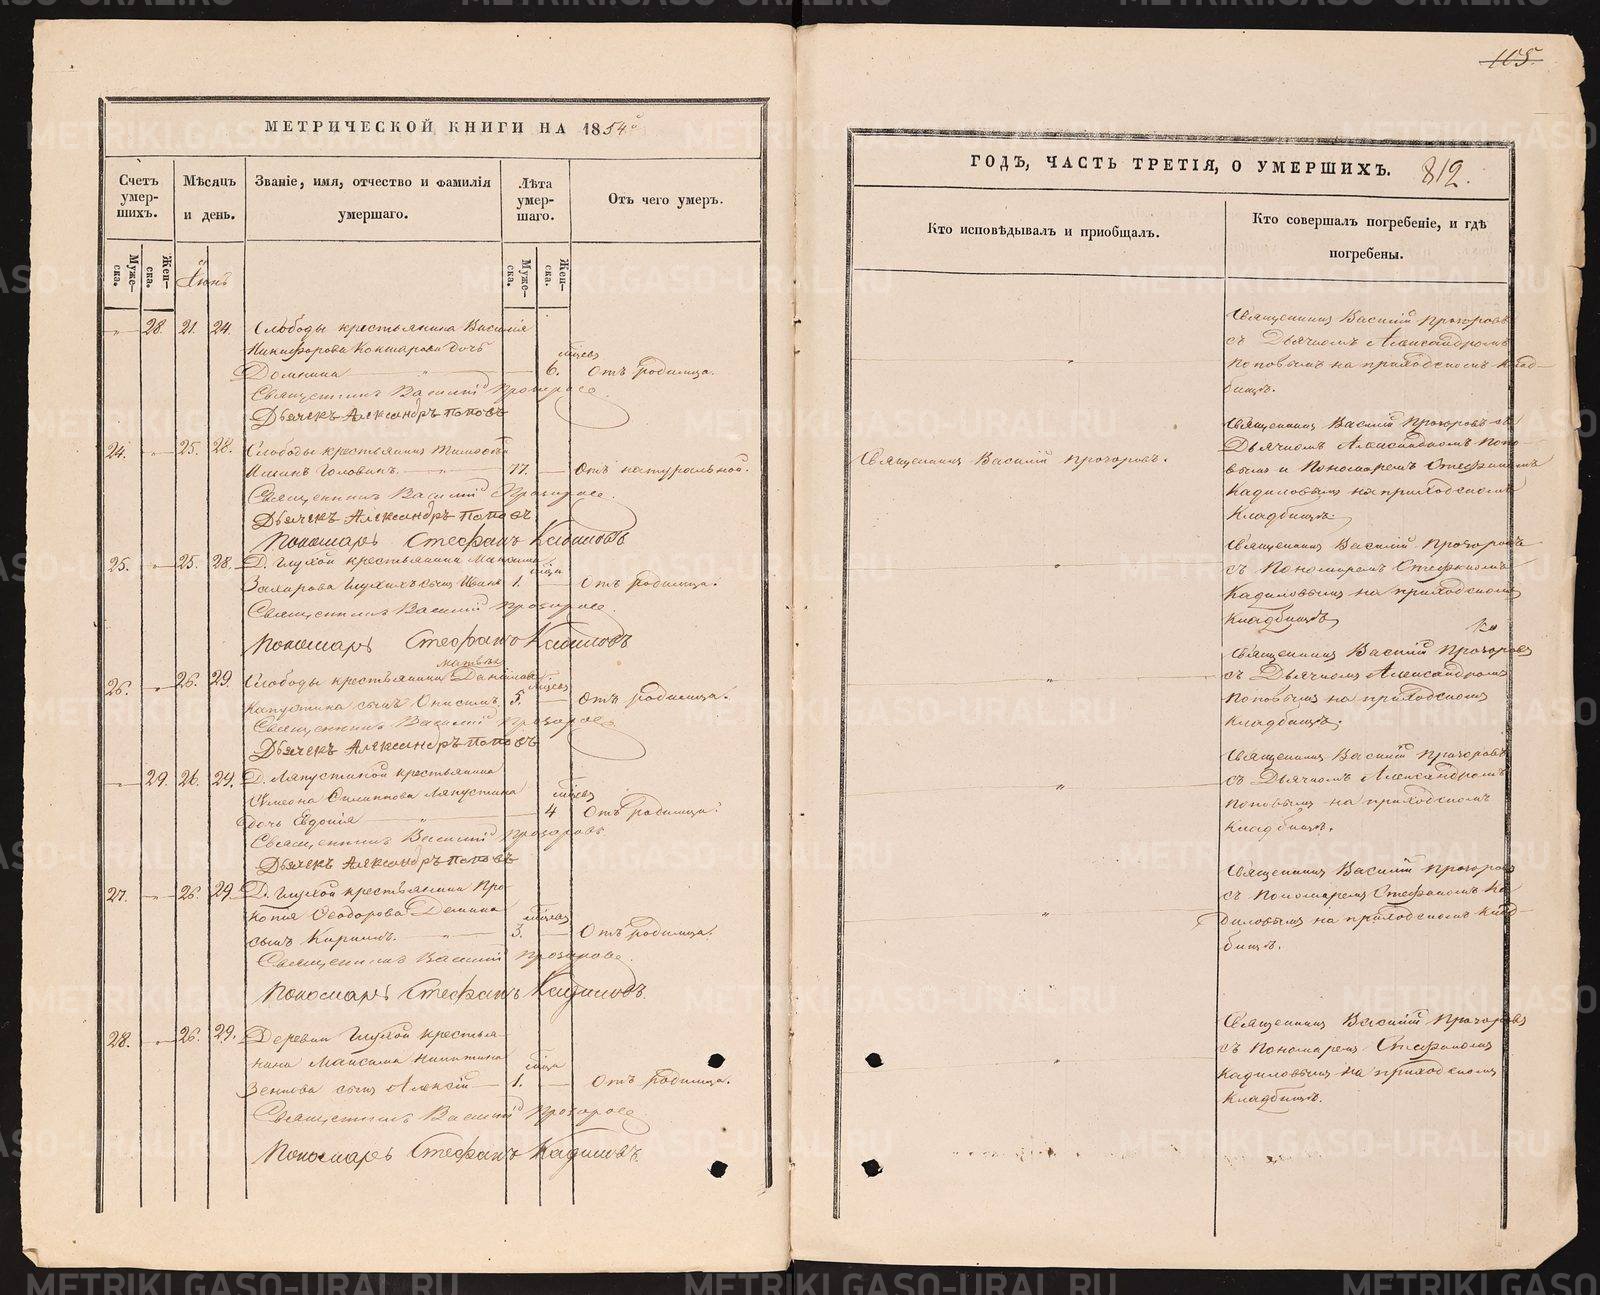 105.
МЕТРИЧЕСКОЙ КНИГИ НА 1854й
Счетъ умер-шихъ.
Мѣсяцъ и день.
Званіе, имя, отчество и фамилія умершаго.
Лѣта умер-шаго.
Отъ чего умеръ.
Муже-ска.
Жен-ска.
Муже-ска.
Жен-ска.
28. 21. 24. Слободы крестьянина Василія
дочь
Домнина 6. Отъ родимца.
Священникъ Василій Прозоровъ
Дьячекъ Александръ Поповъ
24. 25. 28. Слободы крестьянинъ
Головинъ 77. Отъ натуральной.
Священникъ Василій Прозоровъ
Дьячекъ Александръ Поповъ
Пономарь Стефанъ Кадиловъ
25. 25. 28. Д. Глухой крестьянина Максима
Захарова сынъ Иванъ 1. Отъ родимца.
Священникъ Василій Прозоровъ
Пономарь Стефанъ Кадиловъ
26. 26. 29. Слободы крестьянина Данилова
Капустина сынъ Онисимъ 5. Отъ родимца.
Священникъ Василій Прозоровъ
Дьячекъ Александръ Поповъ
29. 26. 29. Д. Ляпустиной крестьянина
Симеона Филиппова Ляпустина
дочь Евдокія 4 Отъ родимца.
Священникъ Василій Прозоровъ
Дьячекъ Александръ Поповъ
27. 26. 29. Д. Глухой крестьянина Про
копія Ѳеодорова Демина
сынъ Кириллъ. 3. Отъ родимца.
Священникъ Василій Прозоровъ
Пономарь Стефанъ Кадиловъ
28. 26. 29. Деревни Глухой крестья-
нина Максима Никитина
сынъ Алексій 1. Отъ родимца.
Священникъ Василій Прозоровъ
Пономарь Стефанъ Кадиловъ
ГОДЪ, ЧАСТЬ ТРЕТІЯ, О УМЕРШИХЪ. 812.
Кто исповѣдывалъ и приобщалъ.
Кто совершалъ погребеніе, и гдѣ погребены.
Священникъ Василій Прозоровъ
съ Дьячкомъ Александромъ
Поповымъ на приходскомъ клад-
бищѣ.
Священникъ Василій Прозоровъ.
Священникъ Василій Прозоровъ съ
Дьячкомъ Александромъ Попо-
вымъ и Пономаремъ Стефаномъ
Кадиловымъ на приходскомъ
Кладбищѣ.
Священникъ Василій Прозоровъ
съ Пономаремъ Стефаномъ
Кадиловымъ на приходскомъ
Кладбищѣ.
Священникъ Василій Прозоровъ
съ Дьячкомъ Александромъ
Поповымъ на приходскомъ
кладбищѣ.
Священникъ Василій Прозоровъ
съ Дьячкомъ Александромъ
Поповымъ на приходскомъ
кладбищѣ.
Священникъ Василій Прозоровъ
съ Пономаремъ Стефаномъ Ка
диловымъ на приходскомъ клад-
бищѣ.
Священникъ Василій Прозоровъ
съ Пономаремъ Стефаномъ
Кадиловымъ на приходскомъ
Кладбищѣ.
METRIKI.GASO-URAL.RU